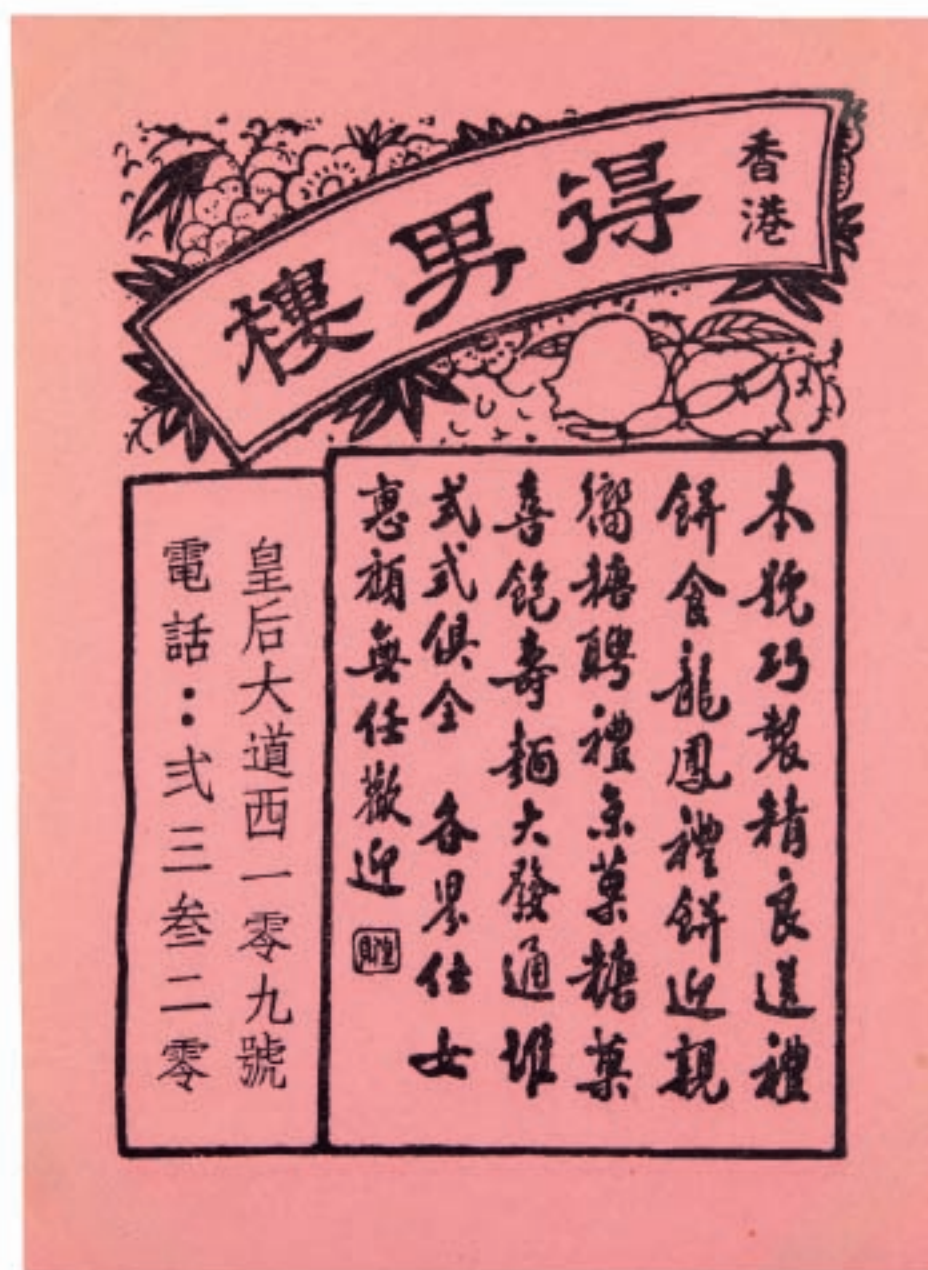 香港
得男樓
本號巧製精良送禮
餅食龍鳳禮餅迎親
嚮糖聘禮京菓糖菓
喜飽壽麵大發通堆
式式俱全 各界仕女
惠顧無任歡迎
皇后大道西一零九號
電話：弍三叁二零